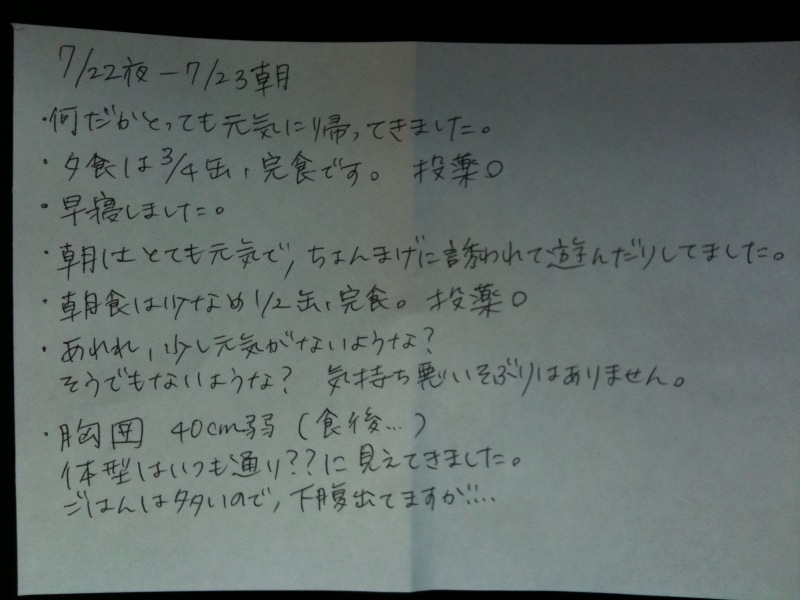 7/22夜－7/23朝
・何だかとっても元気に帰ってきました。
・夕食は3/4缶、完食です。 投薬○
・早寝しました。
・朝はとても元気で、ちょんまげに誘われて遊んだりしてました。
・朝食は少なめ1/2缶、完食。 投薬○
・あれれ、少し元気がないような?
そうでもないような? 気持ち悪いそぶりはありません。
・胸囲 40cm弱（食後…）
体型はいつも通り??に見えてきました。
ごはんは多いので、下腹出てますが…